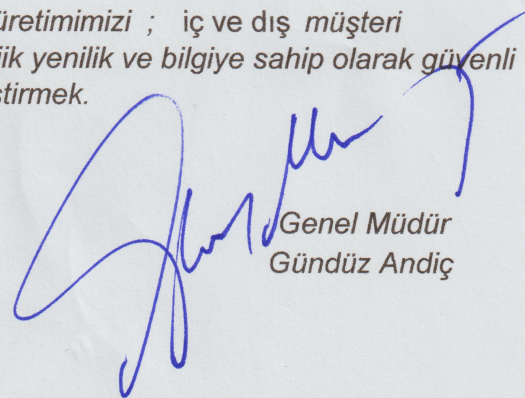 üretimimizi ; iç ve dış müşteri
ik yenilik ve bilgiye sahip olarak güvenli
ştirmek.
Genel Müdür
Gündüz Andiç